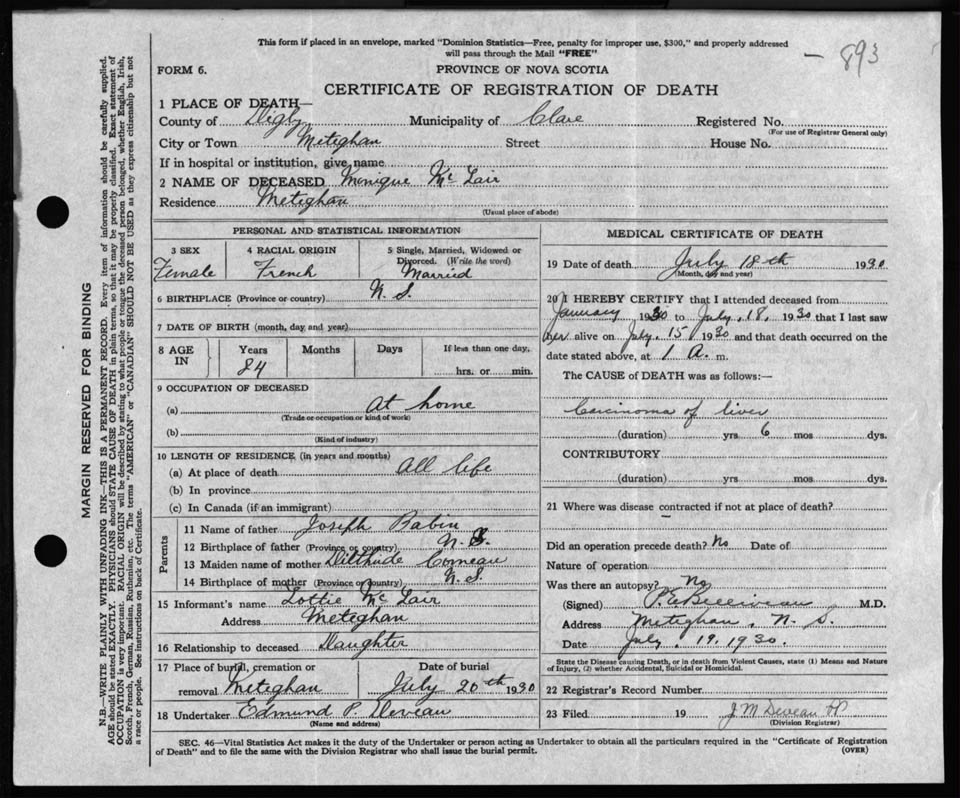 This form if placed in an envelope, marked "Dominion Statistics—Free, penalty for improper use, $300," and properly addressed
will pass through the Mail "FREE"
— 893
FORM 6.
PROVINCE OF NOVA SCOTIA
CERTIFICATE OF REGISTRATION OF DEATH
1 PLACE OF DEATH—
County of Digby Municipality of Clare Registered No.
(For use of Registrar General only)
City or Town Meteghan Street House No.
If in hospital or institution, give name
2 NAME OF DECEASED Monique Mc Lair
Residence Meteghan
(Usual place of abode)
PERSONAL AND STATISTICAL INFORMATION
3 SEX Female
4 RACIAL ORIGIN French
5 Single, Married, Widowed or Divorced. (Write the word) Married
6 BIRTHPLACE (Province or country) N. S.
7 DATE OF BIRTH (month, day and year)
8 AGE IN Years 84 Months Days If less than one day, hrs. or min.
9 OCCUPATION OF DECEASED
(a) At home
(Trade or occupation or kind of work)
(b)
(Kind of industry)
10 LENGTH OF RESIDENCE (in years and months)
(a) At place of death All life
(b) In province
(c) In Canada (if an immigrant)
Parents
11 Name of father Joseph Rabin
12 Birthplace of father (Province or country) N. S.
13 Maiden name of mother Comeau
14 Birthplace of mother (Province or country) N. S.
15 Informant's name Lottie Mc Lair
Address Meteghan
16 Relationship to deceased Daughter
17 Place of burial, cremation or removal Meteghan
Date of burial July 20th 1930
18 Undertaker Edmund P. Deveau
(Name and address)
MEDICAL CERTIFICATE OF DEATH
19 Date of death July 18th 1930
(Month, day and year)
20 I HEREBY CERTIFY that I attended deceased from
January 1930 to July, 18, 1930 that I last saw
her alive on July. 15 1930 and that death occurred on the
date stated above, at 1 A. m.
The CAUSE of DEATH was as follows:—
Carcinoma of liver
(duration) yrs 6 mos dys.
CONTRIBUTORY
(duration) yrs. mos. dys.
21 Where was disease contracted if not at place of death?
Did an operation precede death? No Date of
Nature of operation
Was there an autopsy? No
(Signed) P. E. Belliveau M.D.
Address Meteghan, N. S.
Date July. 19. 1930.
State the Disease causing Death, or in death from Violent Causes, state (1) Means and Nature
of Injury, (2) whether Accidental, Suicidal or Homicidal.
22 Registrar's Record Number
23 Filed 19 J M Deveau
(Division Registrar)
SEC. 46—Vital Statistics Act makes it the duty of the Undertaker or person acting as Undertaker to obtain all the particulars required in the "Certificate of Registration
of Death" and to file the same with the Division Registrar who shall issue the burial permit. (OVER)
MARGIN RESERVED FOR BINDING
N.B.—WRITE PLAINLY WITH UNFADING INK—THIS IS A PERMANENT RECORD. Every item of information should be carefully supplied.
AGE should be stated EXACTLY. PHYSICIANS should STATE CAUSE OF DEATH in plain terms, so that it may be properly classified. Exact statement of
OCCUPATION is very important. RACIAL ORIGIN will be described by stating to what people or tongue the deceased person belonged, whether English, Irish,
Scotch, French, German, Russian, Ruthenian, etc. The terms "AMERICAN" or "CANADIAN" SHOULD NOT BE USED as they express citizenship but not
a race or people. See instructions on back of Certificate.